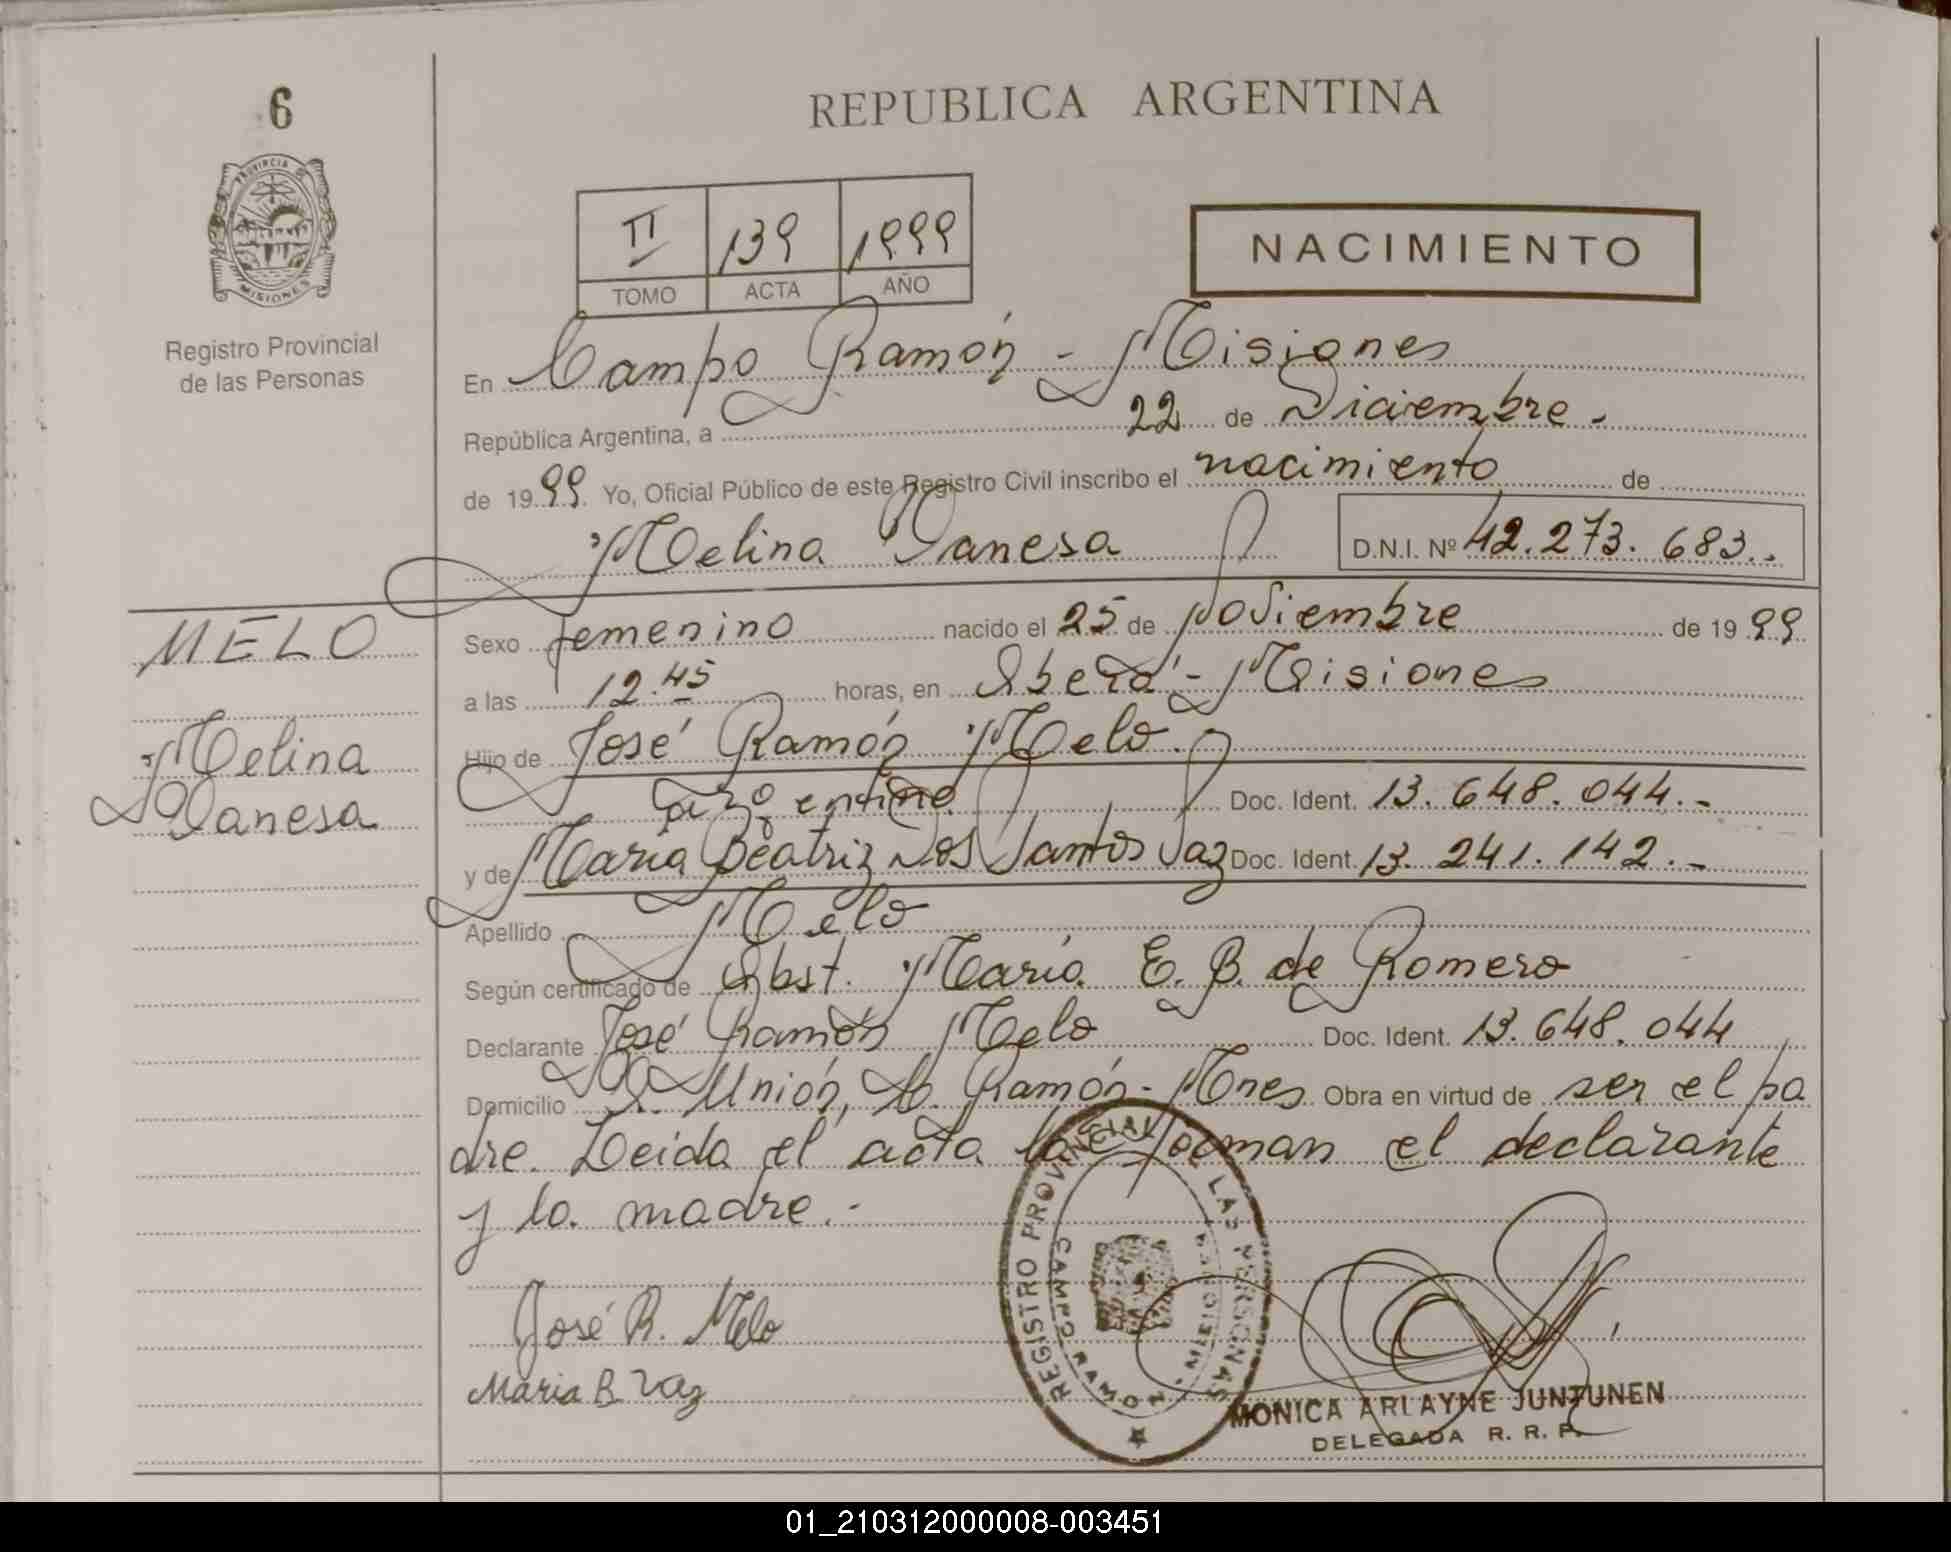 6
PROVINCIA DE
MISIONES
Registro Provincial
de las Personas
REPUBLICA ARGENTINA
II 139 1999
TOMO ACTA AÑO
NACIMIENTO
En Campo Ramón - Misiones
República Argentina, a 22 de Diciembre.
de 1999 Yo, Oficial Público de este Registro Civil inscribo el nacimiento de
Melina Vanesa D.N.I. Nº 42.273.683.-
MELO
Melina
Vanesa
Sexo femenino nacido el 25 de Noviembre de 1999
a las 12.45 horas, en Oberá - Misiones
Hijo de José Ramón Melo.
argentino Doc. Ident. 13.648.044.-
y de María Beatriz Dos Santos Vaz Doc. Ident. 13.241.142.-
Apellido Melo
Según certificado de Obst. María E. B. de Romero
Declarante José Ramón Melo Doc. Ident. 13.648.044
Domicilio V. Unión, C. Ramón - Mnes Obra en virtud de ser el pa
dre. Leida el acta la firman el declarante
y la madre.-
José R. Melo
Maria B Vaz
REGISTRO PROVINCIAL DE LAS PERSONAS
CAMPO RAMON - MISIONES
MONICA ARLAYNE JUNTUNEN
DELEGADA R. R. P.
01_210312000008-003451